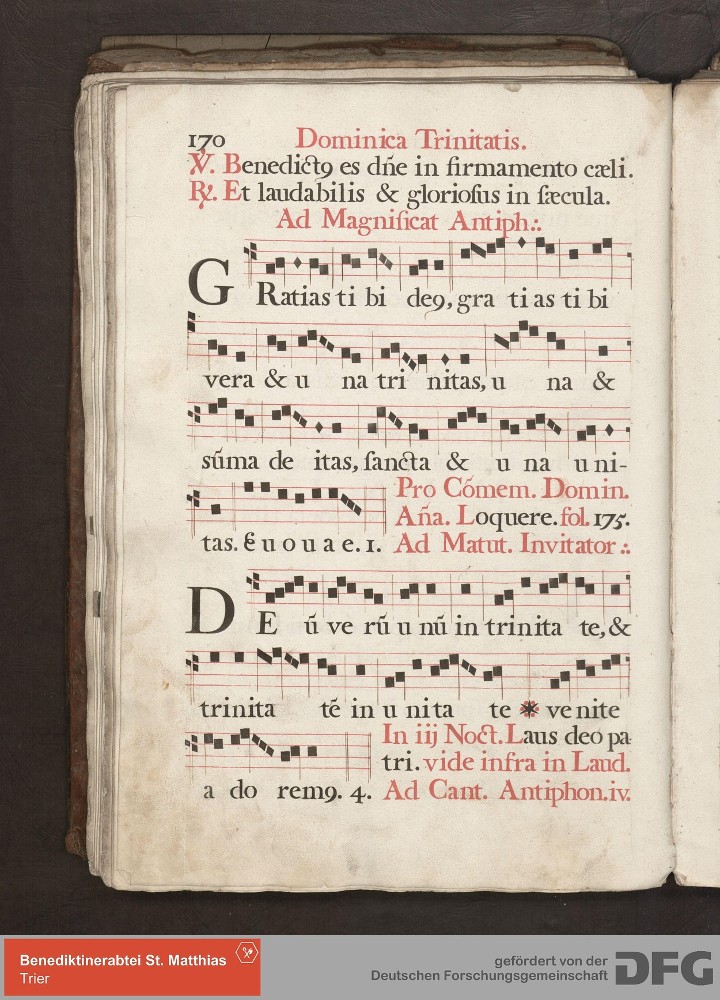 170 Dominica Trinitatis.
℣. Benedictꝯ es dñe in firmamento cæli.
℟. Et laudabilis & gloriosus in sæcula.
Ad Magnificat Antiph:.
GRatias ti bi deꝯ, gra ti as ti bi
vera & u na tri nitas, u na &
sum̃a de itas, sancta & u na u ni-
tas. E u o u a e. 1.
Pro Cóm̃em. Domin.
Aña. Loquere. fol. 175.
Ad Matut. Invitator:.
DE ũ ve rũ u nũ in trinita te, &
trinita tẽ in u nita te * ve nite
a do remꝯ. 4.
In iij Noct. Laus deo pa
tri. vide infra in Laud.
Ad Cant. Antiphon. iv.
Benediktinerabtei St. Matthias
Trier
gefördert von der
Deutschen Forschungsgemeinschaft
DFG